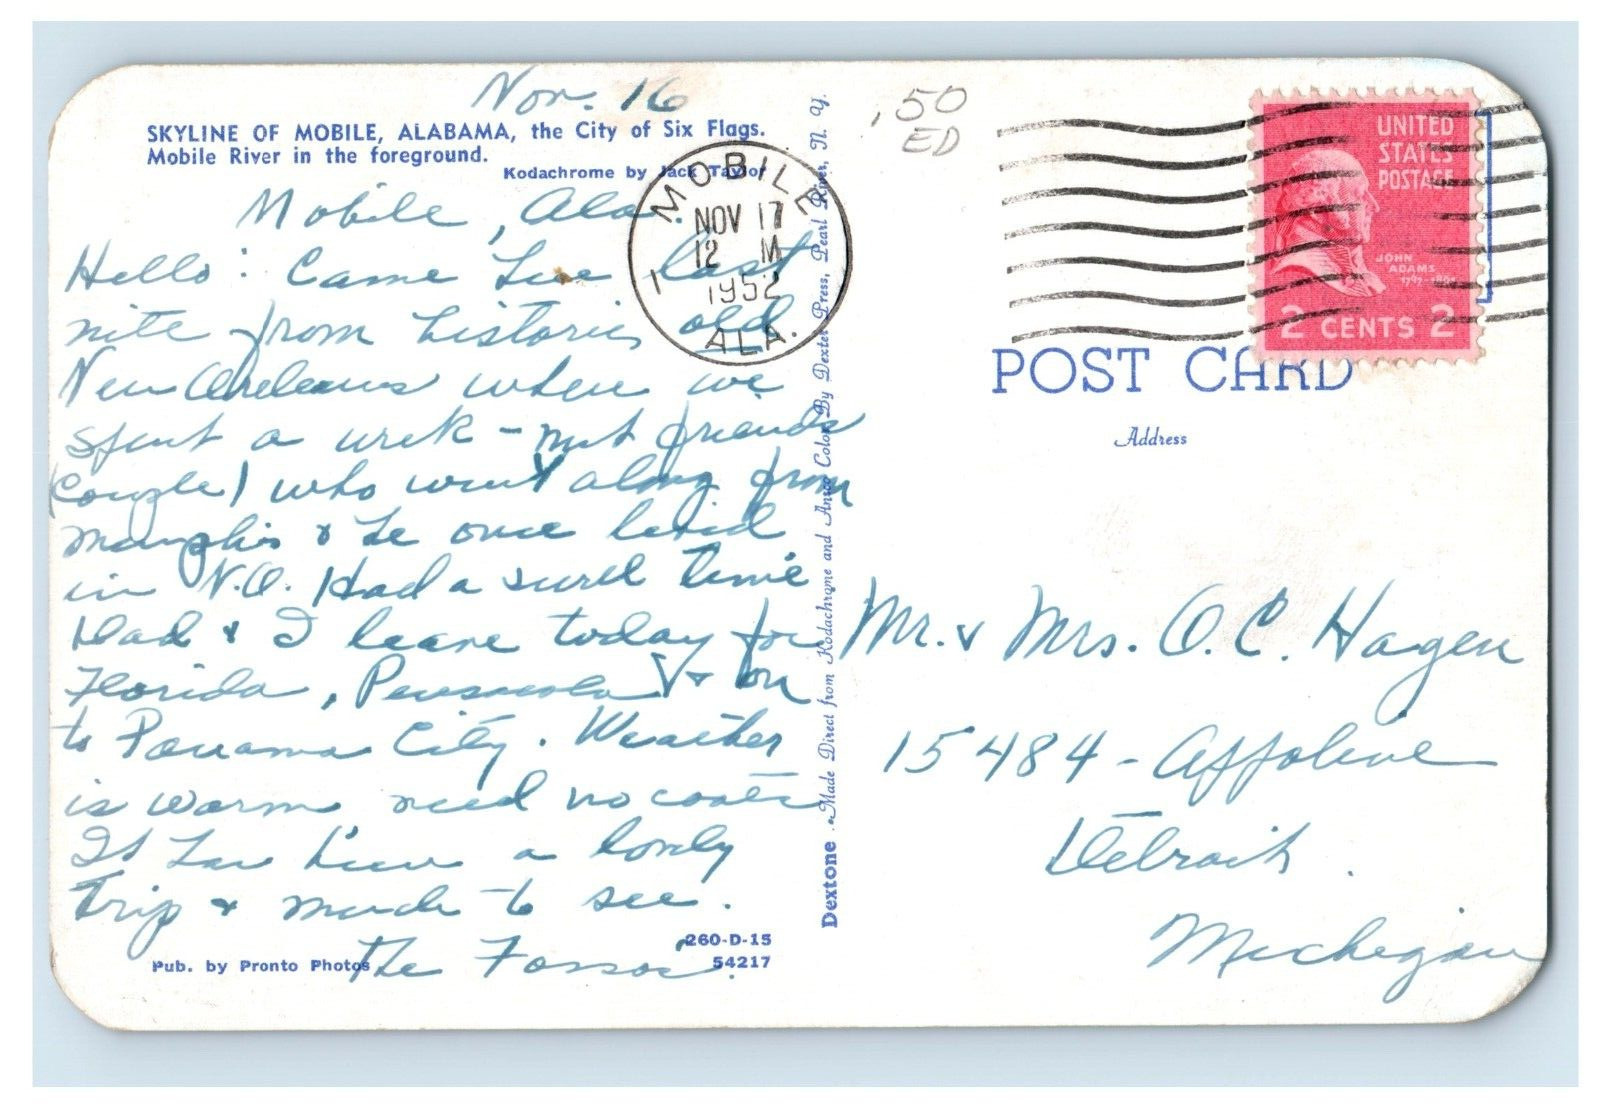 Nov. 16
SKYLINE OF MOBILE, ALABAMA, the City of Six Flags.
Mobile River in the foreground.
Kodachrome by Jack Taylor
Mobile, Ala.
Hello: Came here last
nite from historic old
New Orleans where we
spent a week - met friends
(couple) who went along from
Memphis & he once lived
in N.O. Had a swell time
Dad & I leave today for
Florida, Pensacola & on
to Panama City. Weather
is warm need no coats
It has been a lovely
Trip & much to see.
The
260-D-15
Pub. by Pronto Photos
54217
Dextone
Made Direct from Kodachrome and Ansco Color By Dexter Press, Pearl River, N. Y.
MOBILE
NOV 17
12 M
1952
1
ALA.
.50
ED
UNITED
STATES
POSTAGE
JOHN
ADAMS
1797-1801
2 CENTS 2
POST CARD
Address
Mr. & Mrs. O. C. Hagen
15484 - Appoline
Detroit.
Michigan